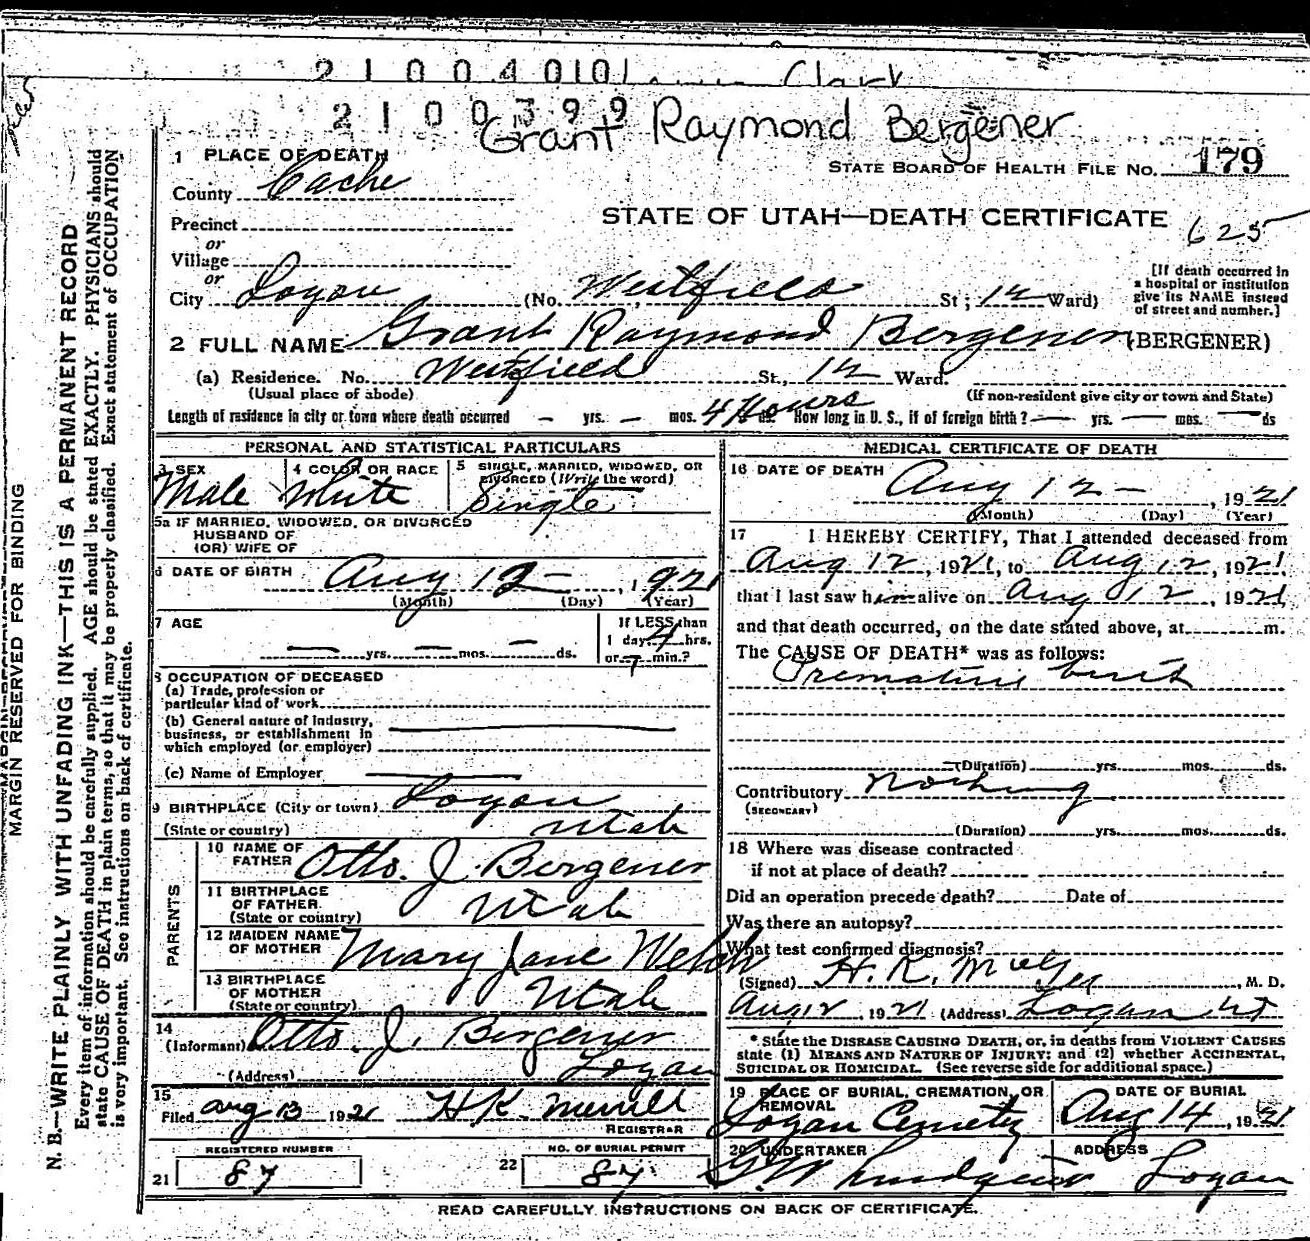 2 1 0 0 4 0 1 0 Clark
2 1 0 0 3 9 9
Grant Raymond Bergener
1 PLACE OF DEATH
STATE BOARD OF HEALTH FILE NO. 179
County Cache
STATE OF UTAH—DEATH CERTIFICATE 625
Precinct
or
Village
or
City Logan (No. Westfield St; 12 Ward)
[If death occurred in
a hospital or institution
give its NAME instead
of street and number.]
2 FULL NAME Grant Raymond Bergener (BERGENER)
(a) Residence. No. Westfield St., 12 Ward.
(Usual place of abode) (If non-resident give city or town and State)
Length of residence in city or town where death occurred — yrs. — mos. 4 Hours ds. How long in U. S., if of foreign birth? — yrs. — mos. — ds
PERSONAL AND STATISTICAL PARTICULARS
3 SEX
Male
4 COLOR OR RACE
White
5 SINGLE, MARRIED, WIDOWED, OR
DIVORCED (Write the word)
Single
5a IF MARRIED, WIDOWED, OR DIVORCED
HUSBAND OF
(OR) WIFE OF
6 DATE OF BIRTH Aug 12 — , 1921
(Month) (Day) (Year)
7 AGE
— yrs. — mos. — ds.
If LESS than
1 day 4 hrs.
or — min.?
8 OCCUPATION OF DECEASED
(a) Trade, profession or
particular kind of work
(b) General nature of industry,
business, or establishment in
which employed (or employer)
(c) Name of Employer
9 BIRTHPLACE (City or town) Logan
(State or country) Utah
PARENTS
10 NAME OF
FATHER Otto. J. Bergener
11 BIRTHPLACE
OF FATHER
(State or country) Utah
12 MAIDEN NAME
OF MOTHER Mary Jane Welch
13 BIRTHPLACE
OF MOTHER
(State or country) Utah
14
(Informant) Otto. J. Bergener
(Address) Logan
15
Filed Aug 13 1921 H.K. Merrill
REGISTRAR
REGISTERED NUMBER
21 87
NO. OF BURIAL PERMIT
22 87
MEDICAL CERTIFICATE OF DEATH
16 DATE OF DEATH
Aug 12 — , 1921
(Month) (Day) (Year)
17 I HEREBY CERTIFY, That I attended deceased from
Aug 12, 1921, to Aug 12, 1921,
that I last saw him alive on Aug 12, 1921
and that death occurred, on the date stated above, at m.
The CAUSE OF DEATH* was as follows:
Premature birth
(Duration) yrs. mos. ds.
Contributory Nothing
(SECONDARY)
(Duration) yrs. mos. ds.
18 Where was disease contracted
if not at place of death?
Did an operation precede death? Date of
Was there an autopsy?
What test confirmed diagnosis?
(Signed) H. K. , M. D.
Aug 12, 1921 (Address) Logan Ut
*State the DISEASE CAUSING DEATH, or, in deaths from VIOLENT CAUSES
state (1) MEANS AND NATURE OF INJURY; and (2) whether ACCIDENTAL,
SUICIDAL OR HOMICIDAL. (See reverse side for additional space.)
19 PLACE OF BURIAL, CREMATION, OR
REMOVAL
Logan Cemetery
DATE OF BURIAL
Aug 14, 1921
20 UNDERTAKER
G.W. Lindquist
ADDRESS
Logan
READ CAREFULLY INSTRUCTIONS ON BACK OF CERTIFICATE.
MARGIN RESERVED FOR BINDING
N. B.—WRITE PLAINLY WITH UNFADING INK—THIS IS A PERMANENT RECORD
Every item of information should be carefully supplied. AGE should be stated EXACTLY. PHYSICIANS should
state CAUSE OF DEATH in plain terms, so that it may be properly classified. Exact statement of OCCUPATION
is very important. See instructions on back of certificate.